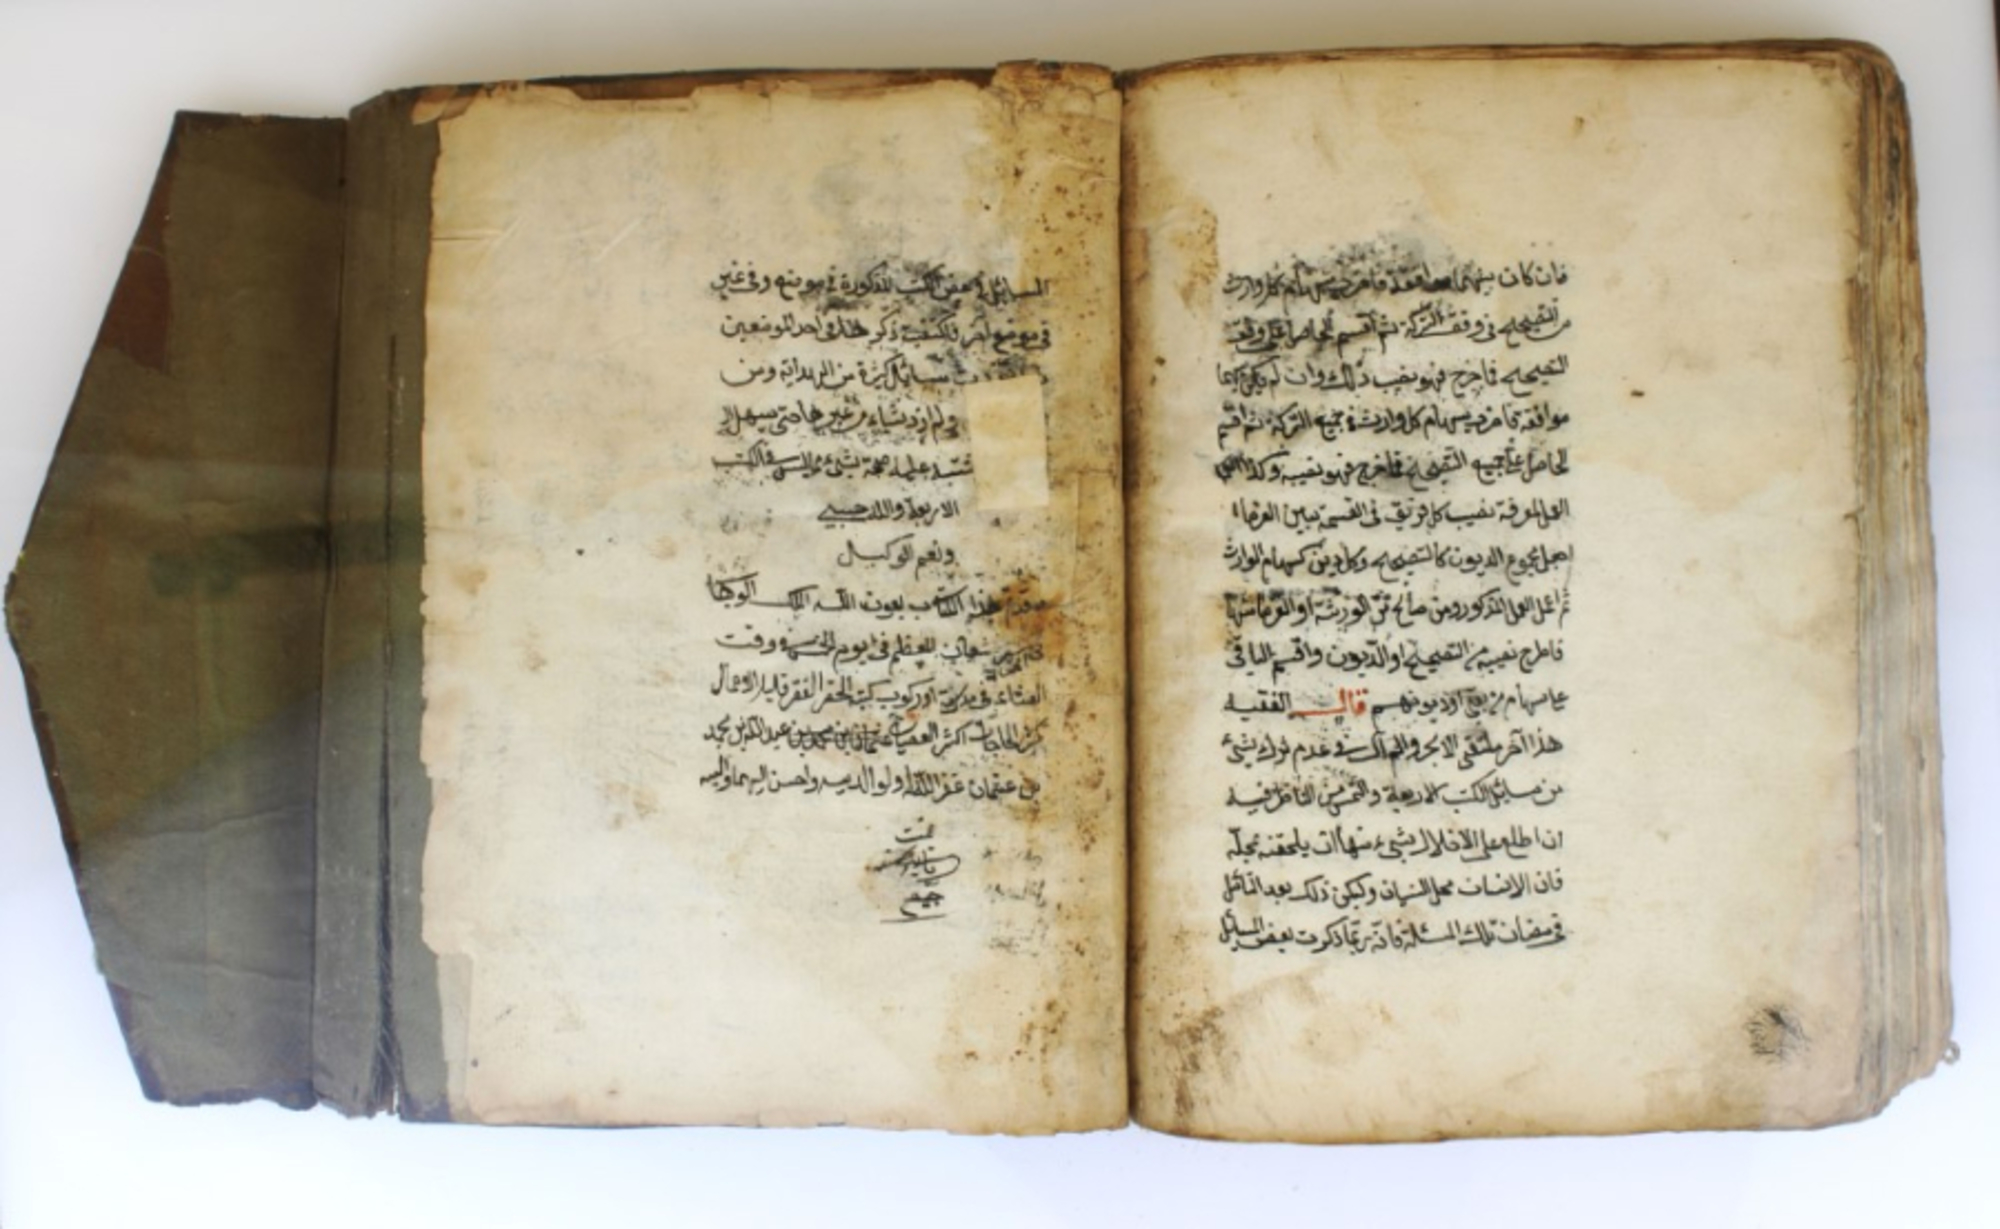 فان كان بينهما موافقة فاضرب سهام كل وارث
من التصحيح فى وفق التركة ثم اقسم الحاصل على وفق
التصحيح فما خرج فهو نصيب ذلك وان لم يكن بينهما
موافقة فاضرب سهام كل وارث فى جميع التركة ثم اقسم
الحاصل على جميع التصحيح فما خرج فهو نصيبه وكذا
العمل لمعرفة نصيب كل فريق فى القسمة بين الغرماء
اجعل مجموع الديون كالتصحيح وكل دين كسهام الوارث
ثم اعمل العمل المذكور ومن صالح من الورثة او الغرماء منها
فاطرح نصيبه من التصحيح او الديون واقسم الباقى
على سهام من بقى او ديونهم قال الفقيه
هذا آخر ملتقى الابحر ولم آل فى عدم ترك شئ
من مسائل الكتب الاربعة والتمس من الناظر فيه
ان اطلع على الاخلال بشئ منها ان يلحقه بمحله
فان الانسان محل النسيان وليكن ذلك بعد التأمل
فى مضان تلك المسئلة فانه ربما ذكرت بعض المسائل
المسائل فى بعض الكتب المذكورة فى موضع وفى غير
فى موضع آخر فاكتفيت ذكرها فى احد الموضعين
مسائل كثيرة من الهداية ومن
ولم ازد شياء من غيرها حتى يسهل
عليه صحة شئ مما ليس فى الكتب
الاربعة والله حسبى
ونعم الوكيل
هذا الكتاب بعون الله الملك الوهاب
شهر شعبان المعظم فى يوم الخمسه وقت
فى مدرسة كتبه الحقر الفقر قليل الاعمال
اكثر العصيات عثمان بن محمد بن عبد الله بن محمد
بن عثمان غفر الله له ولوالديه واحسن اليهما واليه
تمت